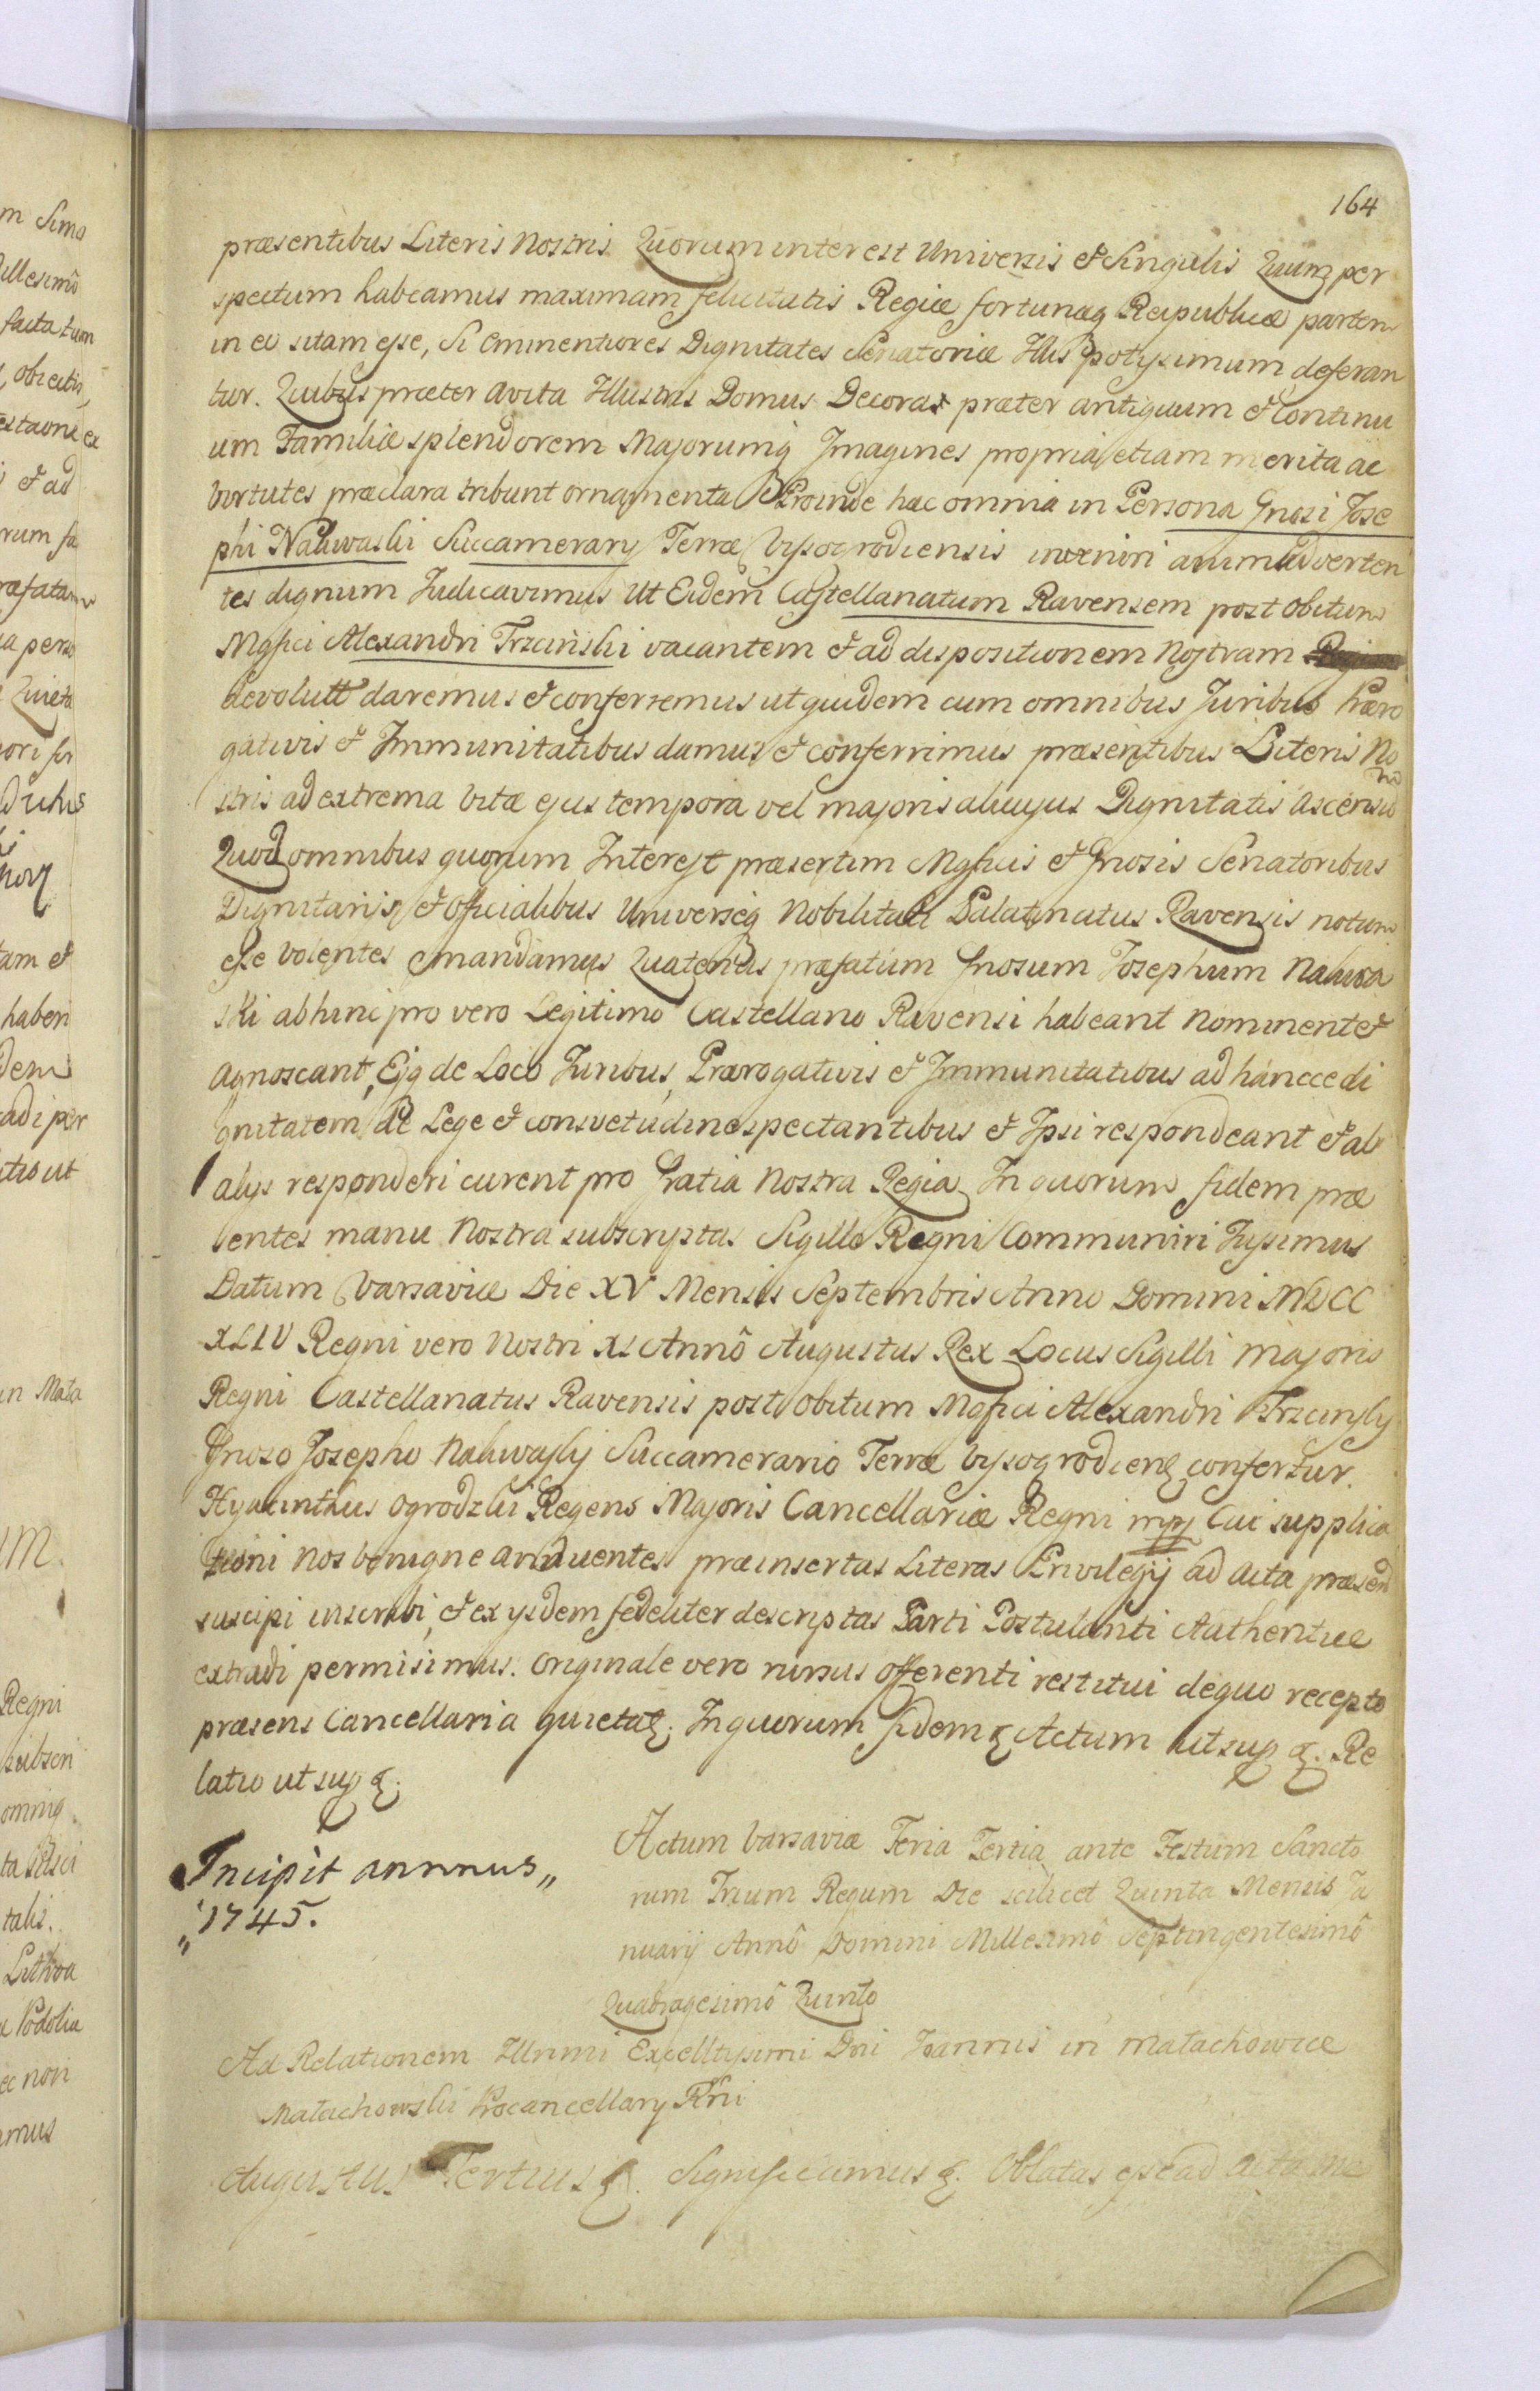 164
præsentibus Literis Nostris Quorum interest Universis et Singulis Quum per
spectum habeamus maximam felicitatis Regiæ fortunæq Reipublicæ partem
in eo sitam esse, Si Eminentiores Dignitates Senatoriæ Illis potysimum deferan
tur. Quibus præter avita Illustris Domus Decora præter antiquum et Continu
um Familiæ splendorem Majorumq Imagines propria etiam merita ac
virtutes præclara tribunt ornamenta Proinde hæc omnia in Persona Gnosi Jose
phi Nakwaski Succamerarij Terræ Vysogrodiensis inveniri animadverten
tes dignum Judicavimus Ut Eidem Castellanatum Ravensem post obitum
Mgfici Alexandri Trzcinski vacantem et ad dispositionem Nostram
devolutt daremus et conferremus ut quidem cum omnibus Juribus Præro
gativis et Immunitatibus damus et conferrimus præsentibus Literis No
stris ad extrema vitæ ejus tempora vel majoris alicujus Dignitatis ascensū
Quod omnibus quorum Interest præsertim Mgficis et Gnosis Senatoribus
Dignitariis, et Officialibus Universæq Nobilitati Palatinatus Ravensis notum
esse volentes mandamus Quatenus præfatum Gnosum Josephum Nakwa
ski abhinc pro vero Legitimo Castellano Ravensi habeant Nominent et
agnoscant, Ejq de Loco Juribus, Prærogativis et Immunitatibus ad hancce di
gnitatem de Lege et consvetudine spectantibus et Ipsi respondeant et ab
alijs responderi curent pro Gratia Nostra Regia In quorum fidem præ
sentes manu Nostra subscriptas Sigillo Regni Communiri Jussimus
Datum Varsaviæ Die XV Mensis Septembris Anno Domini MDCC
XLIV Regni vero Nostri XI Annô Augustus Rex Locus Sigilli Majoris
Regni Castellanatus Ravensis post obitum Mgfici Alexandri Trzcinsky
Gnoso Josepho Nakwasky Succamerario Terræ Vysogrodien confertur.
Hyacinthus Ogrodzki Regens Majoris Cancellariæ Regni mpp Cui supplica
tioni Nos benigne annuentes præinsertas Literas Privilegij ad Acta præsen
suscipi inscribi, et ex ijsdem fideliter descriptas Parti Postulanti Authenticæ
extradi permisimus. Originale vero rursus offerenti restitui dequo recepto
præsens Cancellaria quietat. In quorum fidem Actum ut sup. Re
latio ut sup
Incipit annnus„
„1745.
Actum Varsaviæ Feria Tertia ante Festum Sancto
rum Trium Regum Die scilicet Quinta Mensis Ja
nuarij Annô Domini Millesimô Septingentesimô
Quadragesimô Quinto
Ad Relationem Illnmi Excelltysimi Dni Joannis in Małachowice
Małachowski Procancellary Rni
Augustus Tertius. Significamus. Oblatas esse ad Acta Me